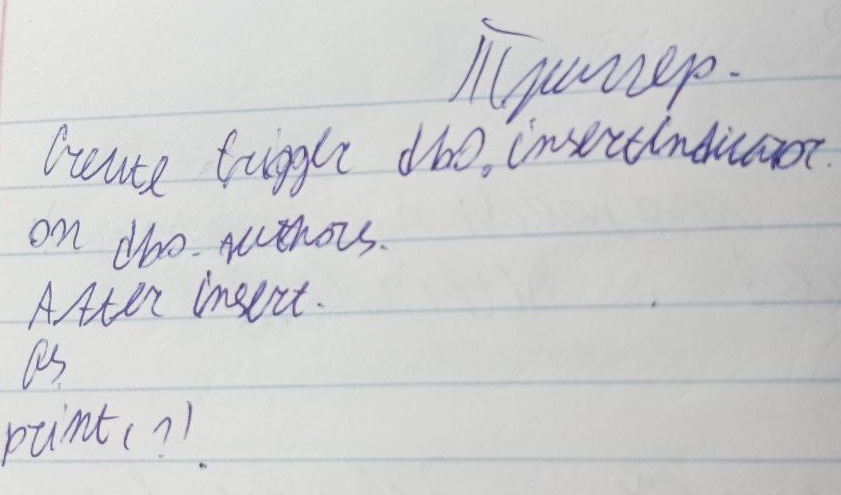 Триггер.
Create trigger dbo.insertIndicator.
on dbo.authors.
After insert.
as
print( ? ) .